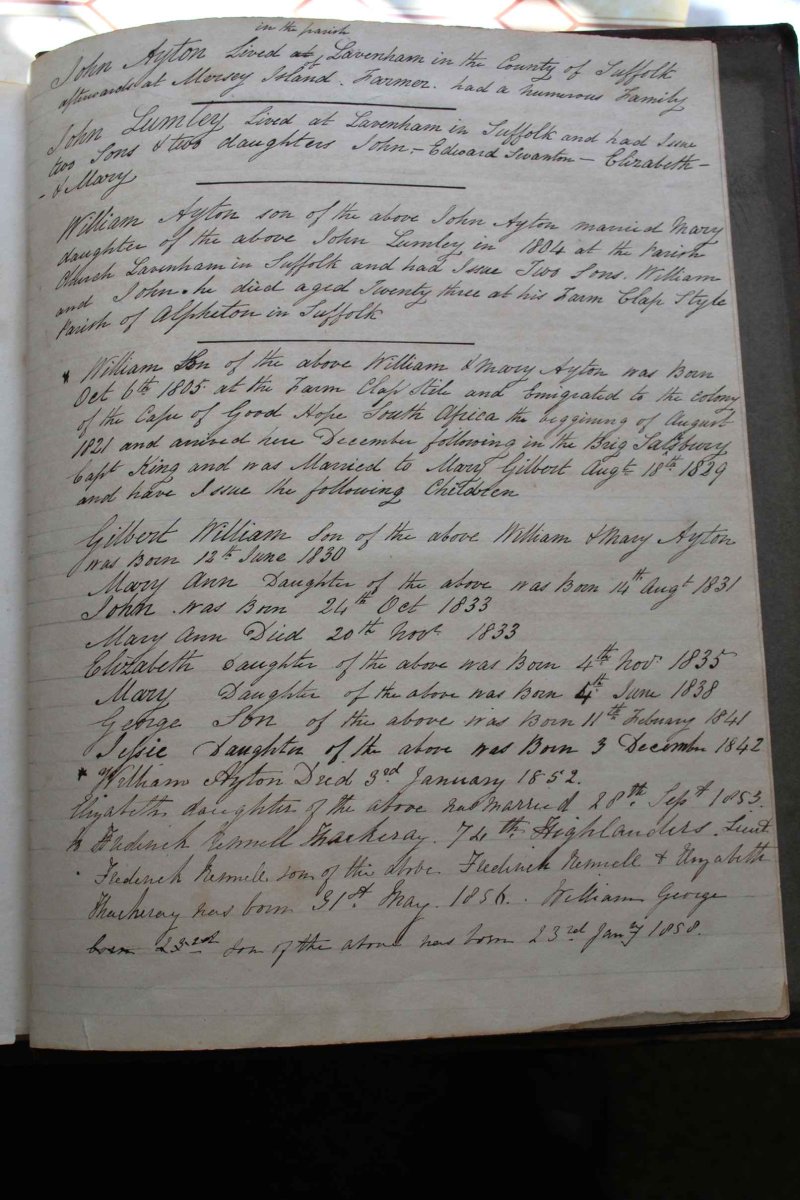 in the parish
John Ayton Lived at Lavenham in the County of Suffolk
afterwards at Mersey Island. Farmer. had a numerous Family
John Lumley Lived at Lavenham in Suffolk and had Issue
two Sons & two daughters John, - Edward Swanton - Elizabeth -
- & Mary
William Ayton son of the above John Ayton married Mary
daughter of the above John Lumley in 1804 at the Parish
Church Lavenham in Suffolk and had Issue Two Sons. William
and John. he died aged Twenty three at his Farm Clap Style
Parish of Alpheton in Suffolk
William Son of the above William & Mary Ayton was Born
Oct 6th 1805 at the Farm Clap Stile and Emigrated to the colony
of the Cape of Good Hope South Africa the beggining of August
1821 and arrived here December following in the Brig Salsbury
Capt King and was Married to Mary Gilbert Augt 18th 1829
and have Issue the following Children
Gilbert William Son of the above William & Mary Ayton
was Born 12th June 1830
Mary Ann Daughter of the above was Born 14th Augt 1831
John was Born 24th Oct 1833
Mary Ann Died 20th Novr 1833
Elizabeth daughter of the above was Born 4th Novr 1835
Mary Daughter of the above was Born 4th June 1838
George Son of the above was Born 11th Febuary 1841
Jessie Daughter of the above was Born 3 December 1842
William Ayton Died 3rd January 1852.
Elizabeth daughter of the above was married 28th Sept 1853.
to Frederick Rennell Thackeray. 74th Highlanders. Lieut
Frederick Rennell son of the above Frederick Rennell & Elizabeth
Thackeray was born 31st May. 1856. William George
born 23rd son of the above was born 23rd Jany 1858.